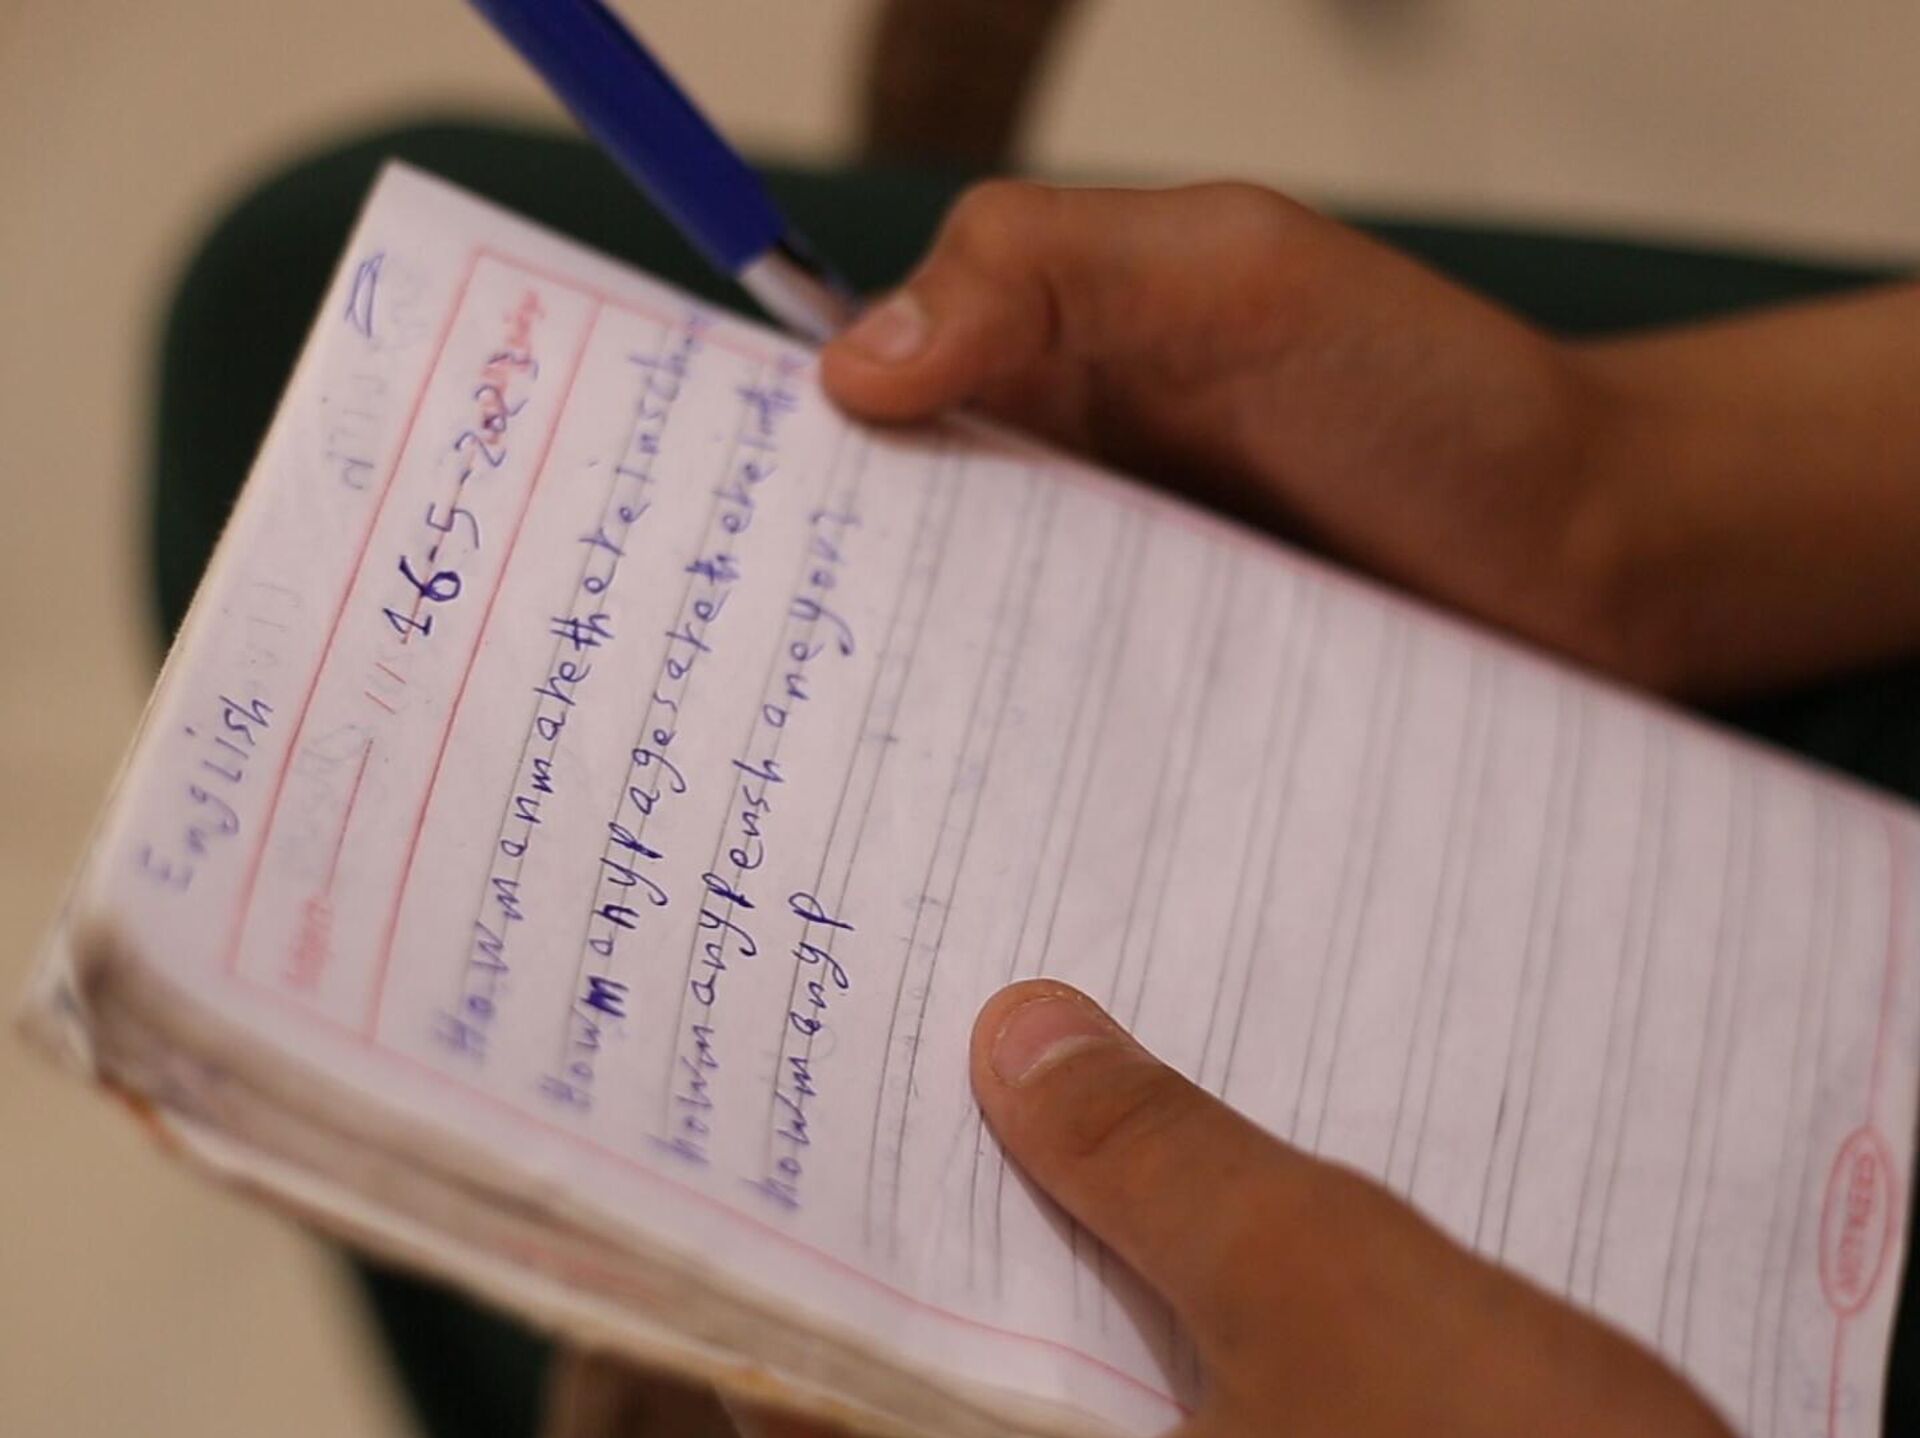 English
16-5-2023
Howmanmarethereinsch
Howmanypagesarethereinth
howmanypenshaneyou?
howmanyp
CENTURY